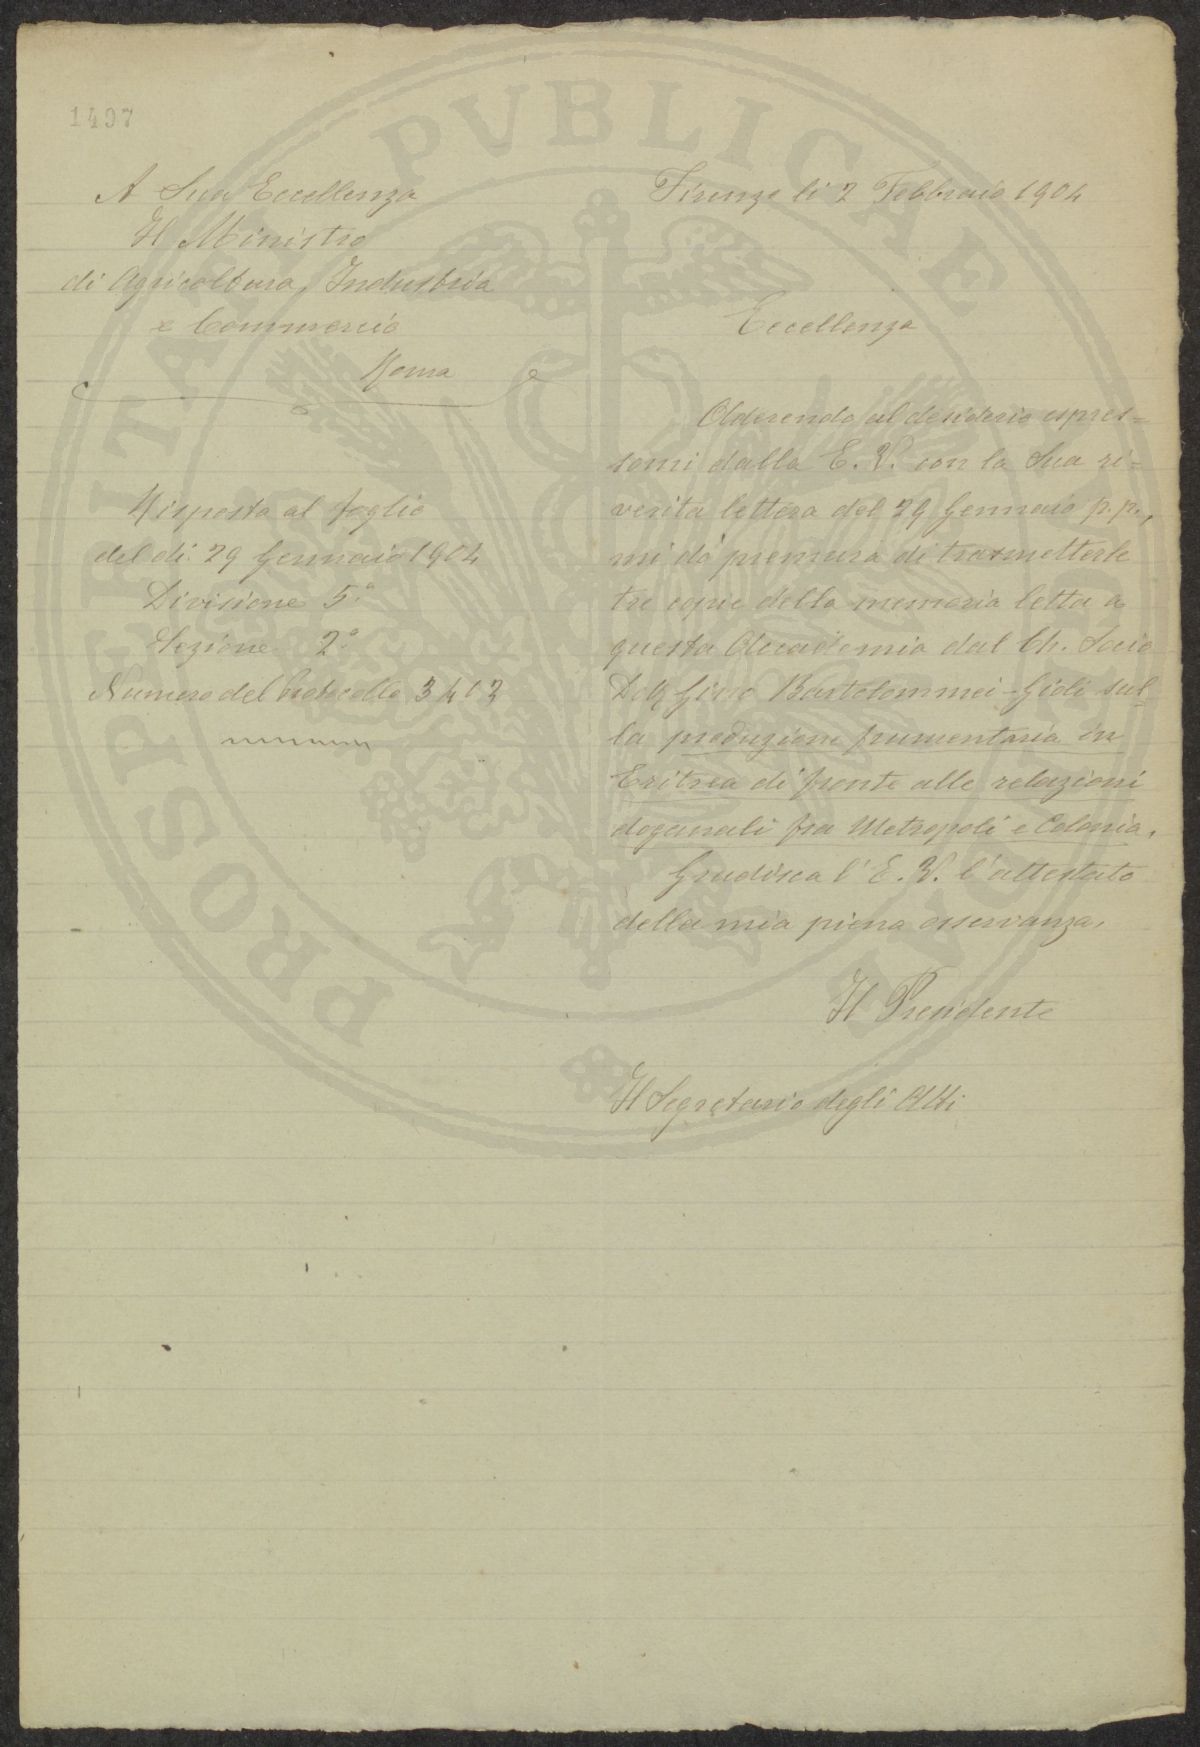 1497
A Sua Eccellenza
Il Ministro
di Agricoltura, Industria
e Commercio
Roma
Risposta al foglio
del dì: 29 Gennaio 1904
Divisione 5.a
Sezione 2.a
Numero del Protocollo 3402
Firenze li 2 Febbraio 1904
Eccellenza
Aderendo al desiderio espres=
somi dalla E. V. con la Sua ri=
verita lettera del 29 Gennaio p.p.,
mi dò premura di trasmetterle
tre copie della memoria letta a
questa Accademia dal Ch. Socio
Dott Gino Bartolommei-Gioli sul=
la produzione frumentaria in
Eritrea di fronte alle relazioni
doganali fra Metropoli e Colonia.
Gradisca l'E. V. l'attestato
della mia piena osservanza.
Il Presidente
Il Segretario degli Atti
PROSPERITATI PVBLICAE AVGENDAE